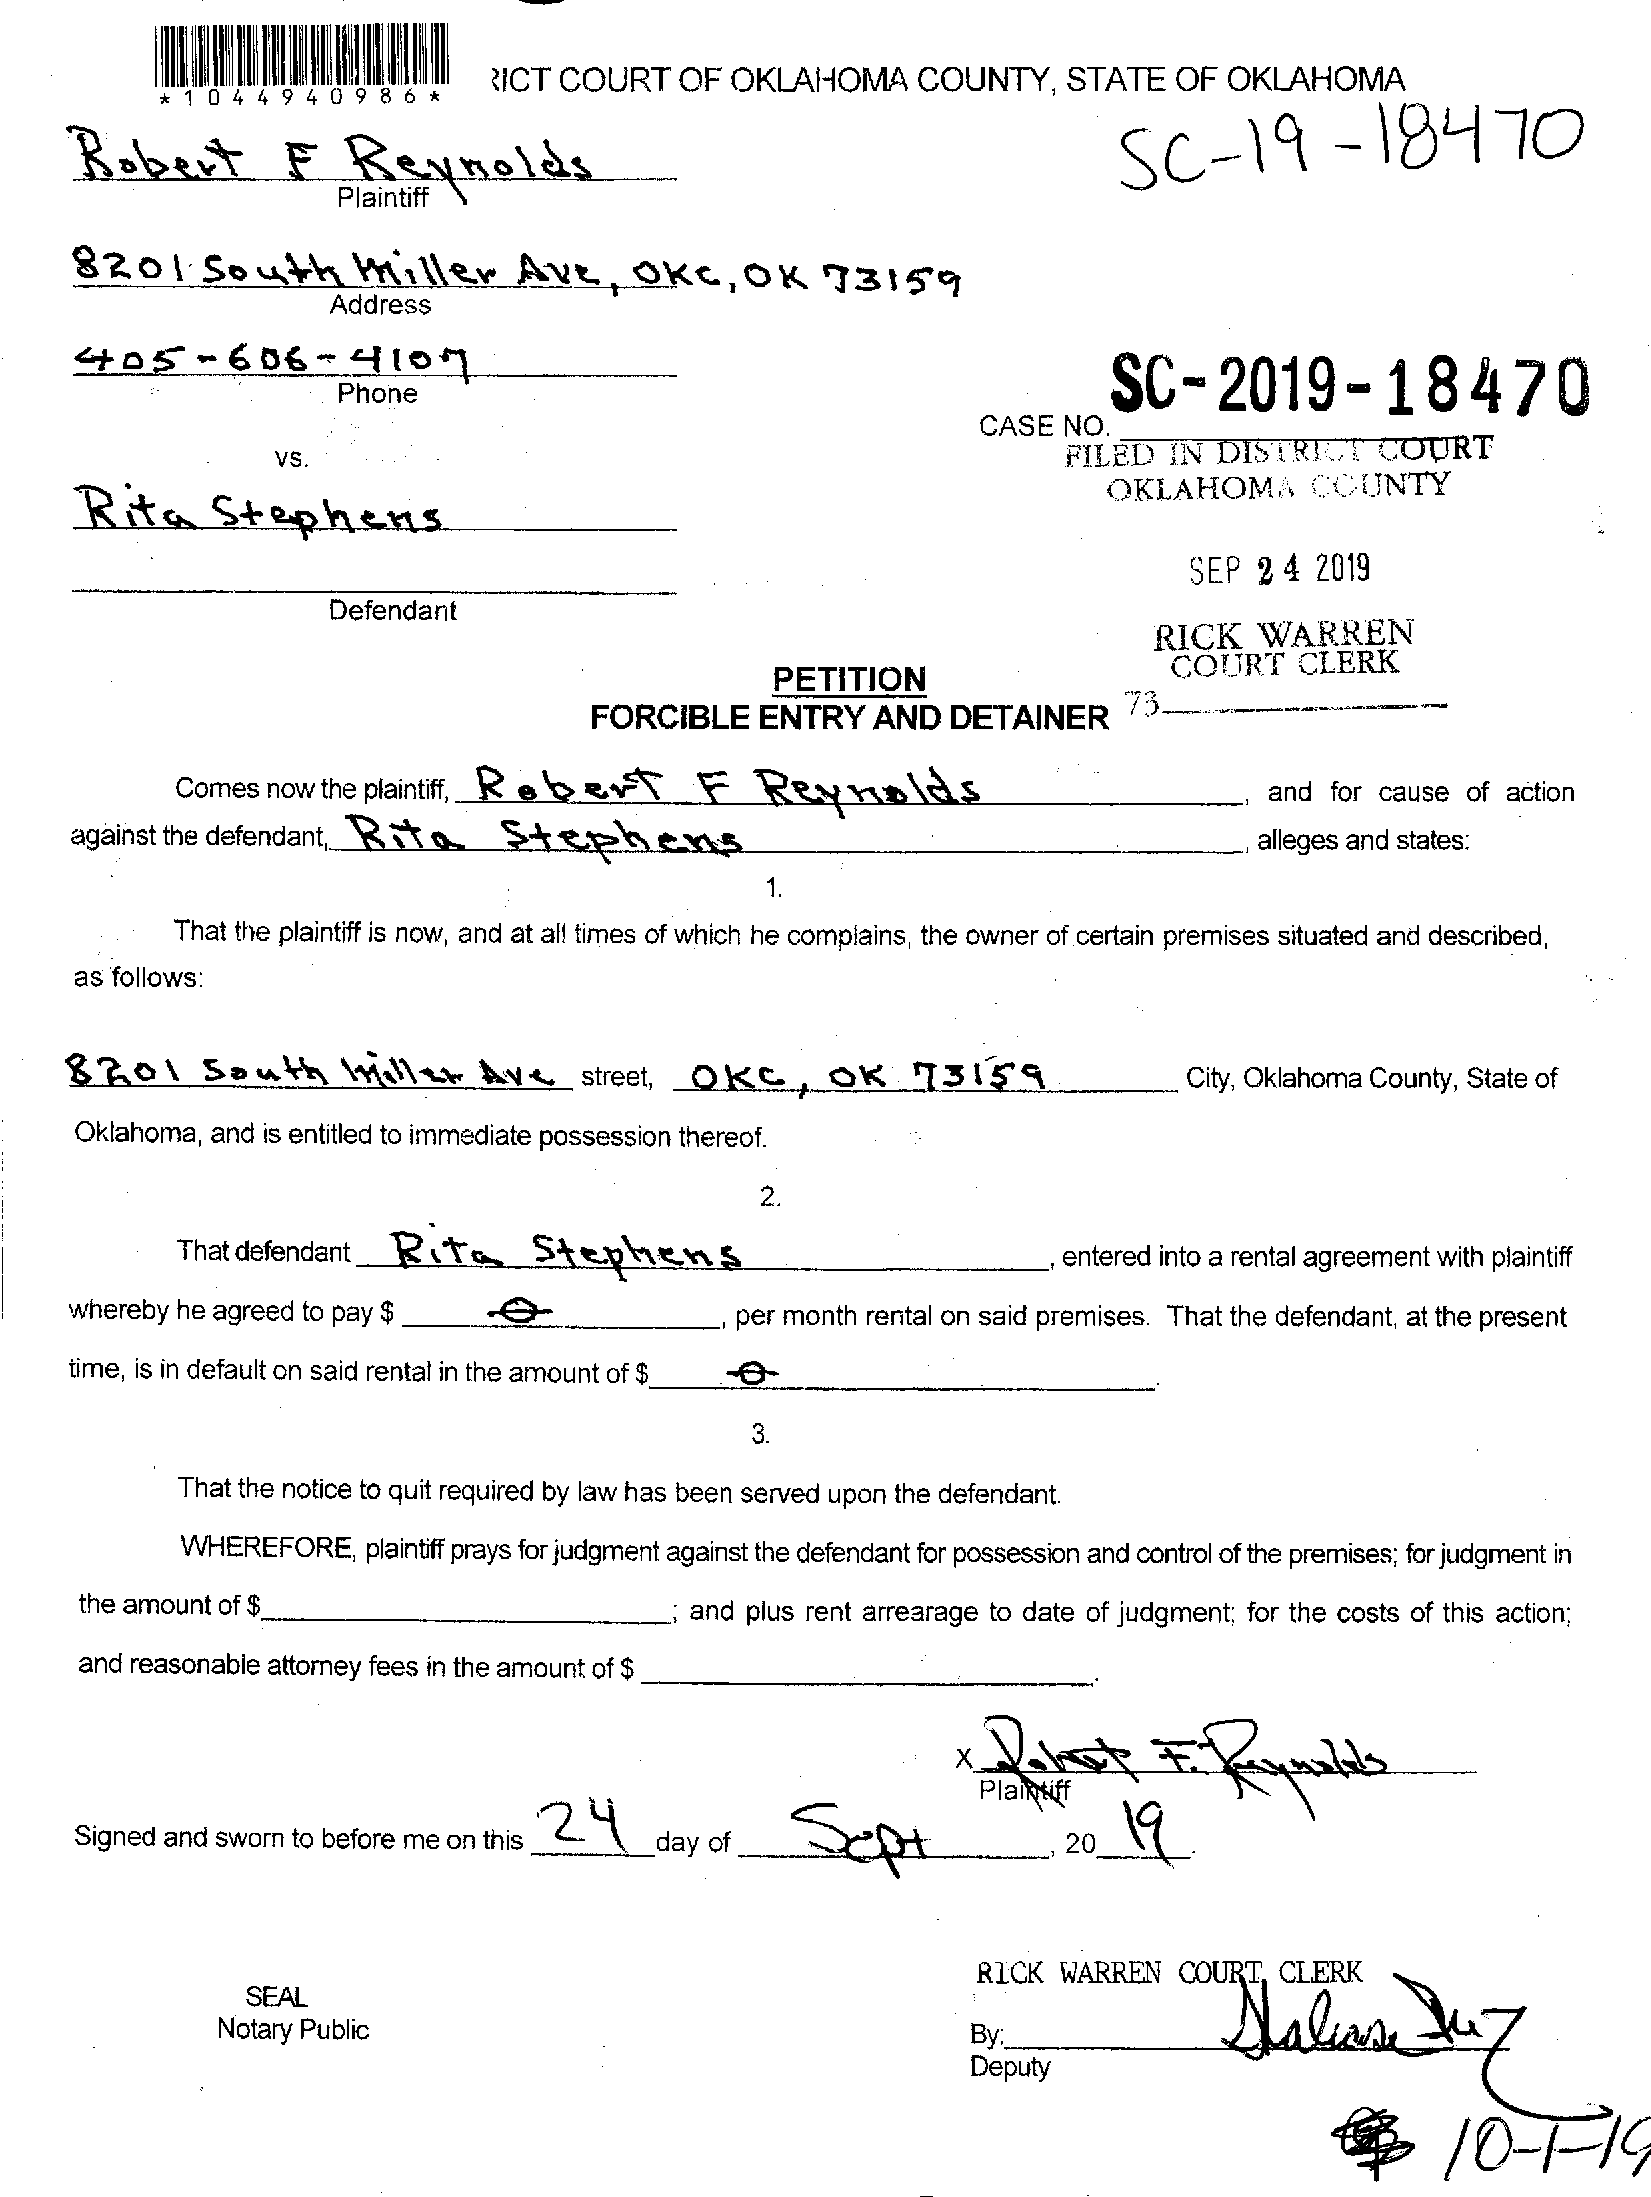 *1044940986*
RICT COURT OF OKLAHOMA COUNTY, STATE OF OKLAHOMA
SC-19-18470
Robert F Reynolds
Plaintiff
8201 South Miller Ave, OKC, OK 73159
Address
405-606-4107
Phone
SC-2019-18470
CASE NO.
FILED IN DISTRICT COURT
OKLAHOMA COUNTY
vs.
Rita Stephens
SEP 24 2019
Defendant
RICK WARREN
COURT CLERK
PETITION
73
FORCIBLE ENTRY AND DETAINER
Comes now the plaintiff, Robert F Reynolds, and for cause of action
against the defendant, Rita Stephens, alleges and states:
1.
That the plaintiff is now, and at all times of which he complains, the owner of certain premises situated and described,
as follows:
8201 South Miller Ave street, OKC, OK 73159 City, Oklahoma County, State of
Oklahoma, and is entitled to immediate possession thereof.
2.
That defendant Rita Stephens, entered into a rental agreement with plaintiff
whereby he agreed to pay $ 0, per month rental on said premises. That the defendant, at the present
time, is in default on said rental in the amount of $ 0.
3.
That the notice to quit required by law has been served upon the defendant.
WHEREFORE, plaintiff prays for judgment against the defendant for possession and control of the premises; for judgment in
the amount of $ ; and plus rent arrearage to date of judgment; for the costs of this action;
and reasonable attorney fees in the amount of $ .
X Robert F. Reynolds
Plaintiff
Signed and sworn to before me on this 24 day of Sept, 20 19.
RICK WARREN COURT CLERK
SEAL
Notary Public
By:
Deputy
10-1-19